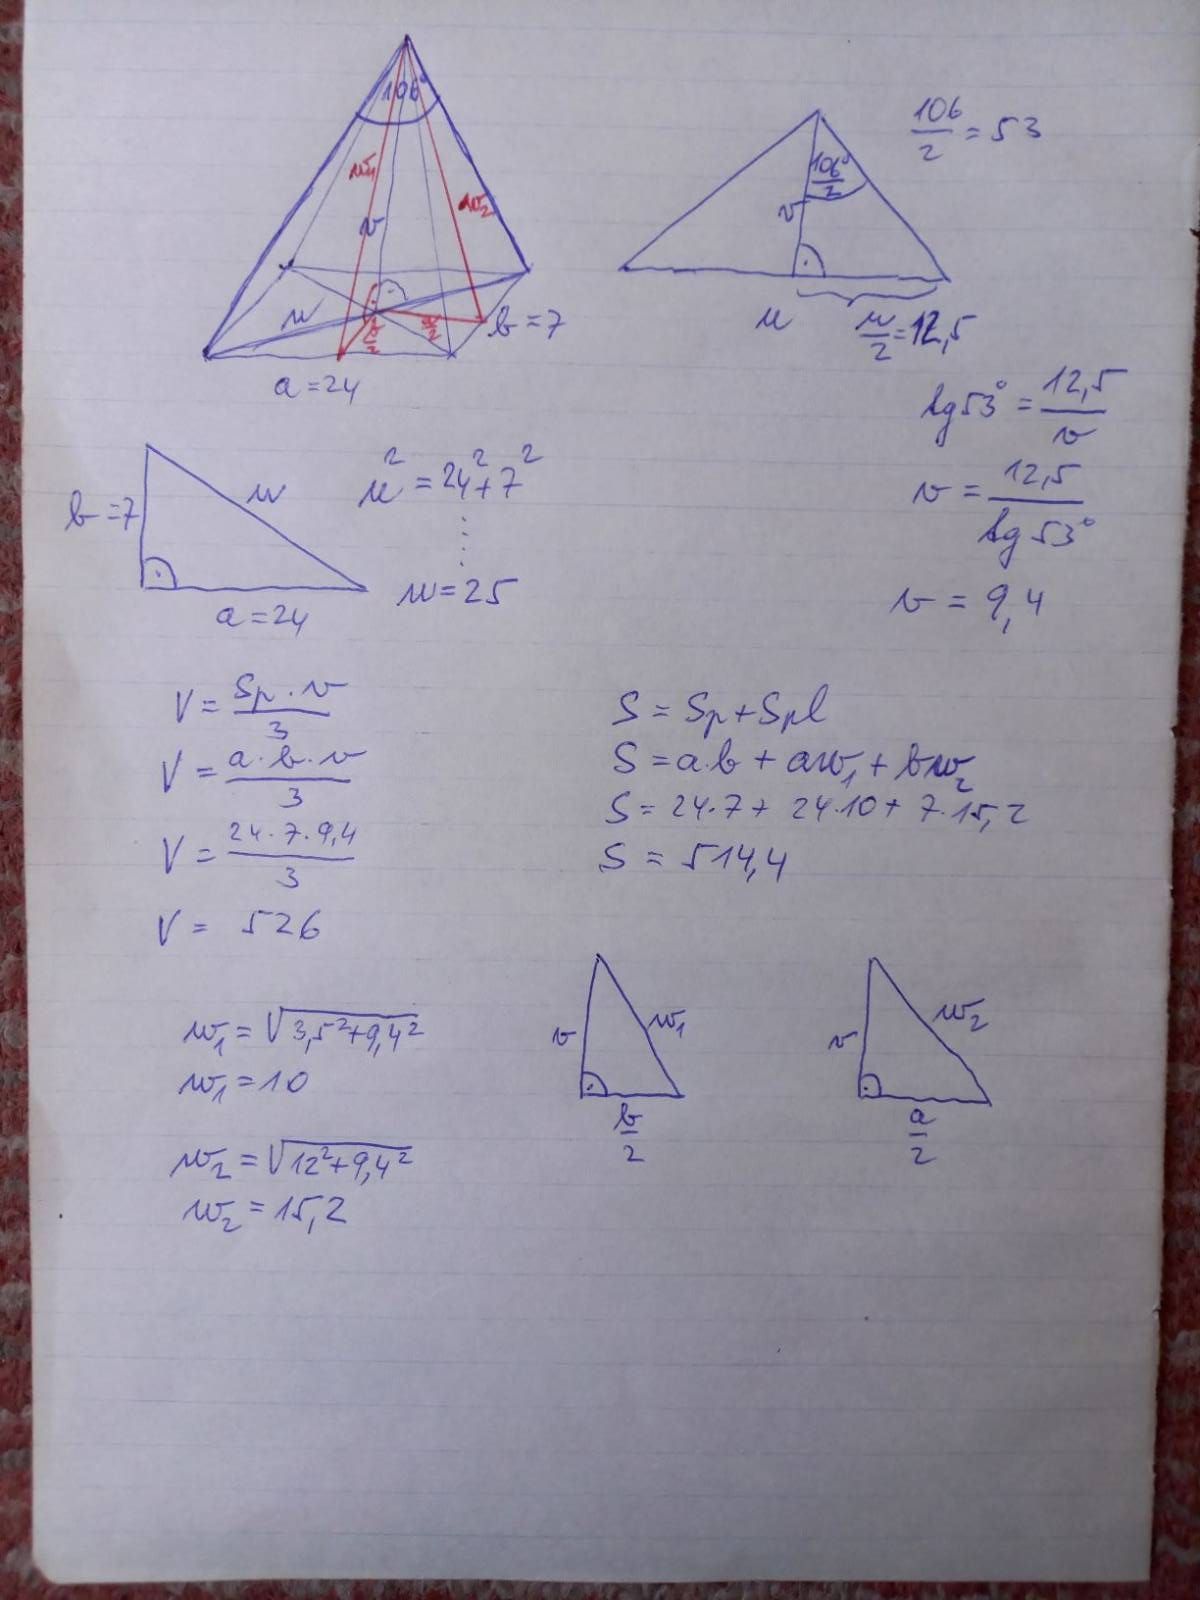 106°
w₁
v
w₂
u
b/2
a/2
b = 7
a = 24
106/2 = 53
106°/2
v
u
u/2 = 12,5
tg 53° = 12,5/v
v = 12,5/tg 53°
v = 9,4
b = 7
u
a = 24
u² = 24² + 7²
⋮
u = 25
V = Sp · v/3
V = a · b · v/3
V = 24 · 7 · 9,4/3
V = 526
S = Sp + Spl
S = a·b + aw₁ + bw₂
S = 24·7 + 24·10 + 7·15,2
S = 514,4
w₁ = √3,5² + 9,4²
w₁ = 10
w₂ = √12² + 9,4²
w₂ = 15,2
v
w₁
b/2
v
w₂
a/2